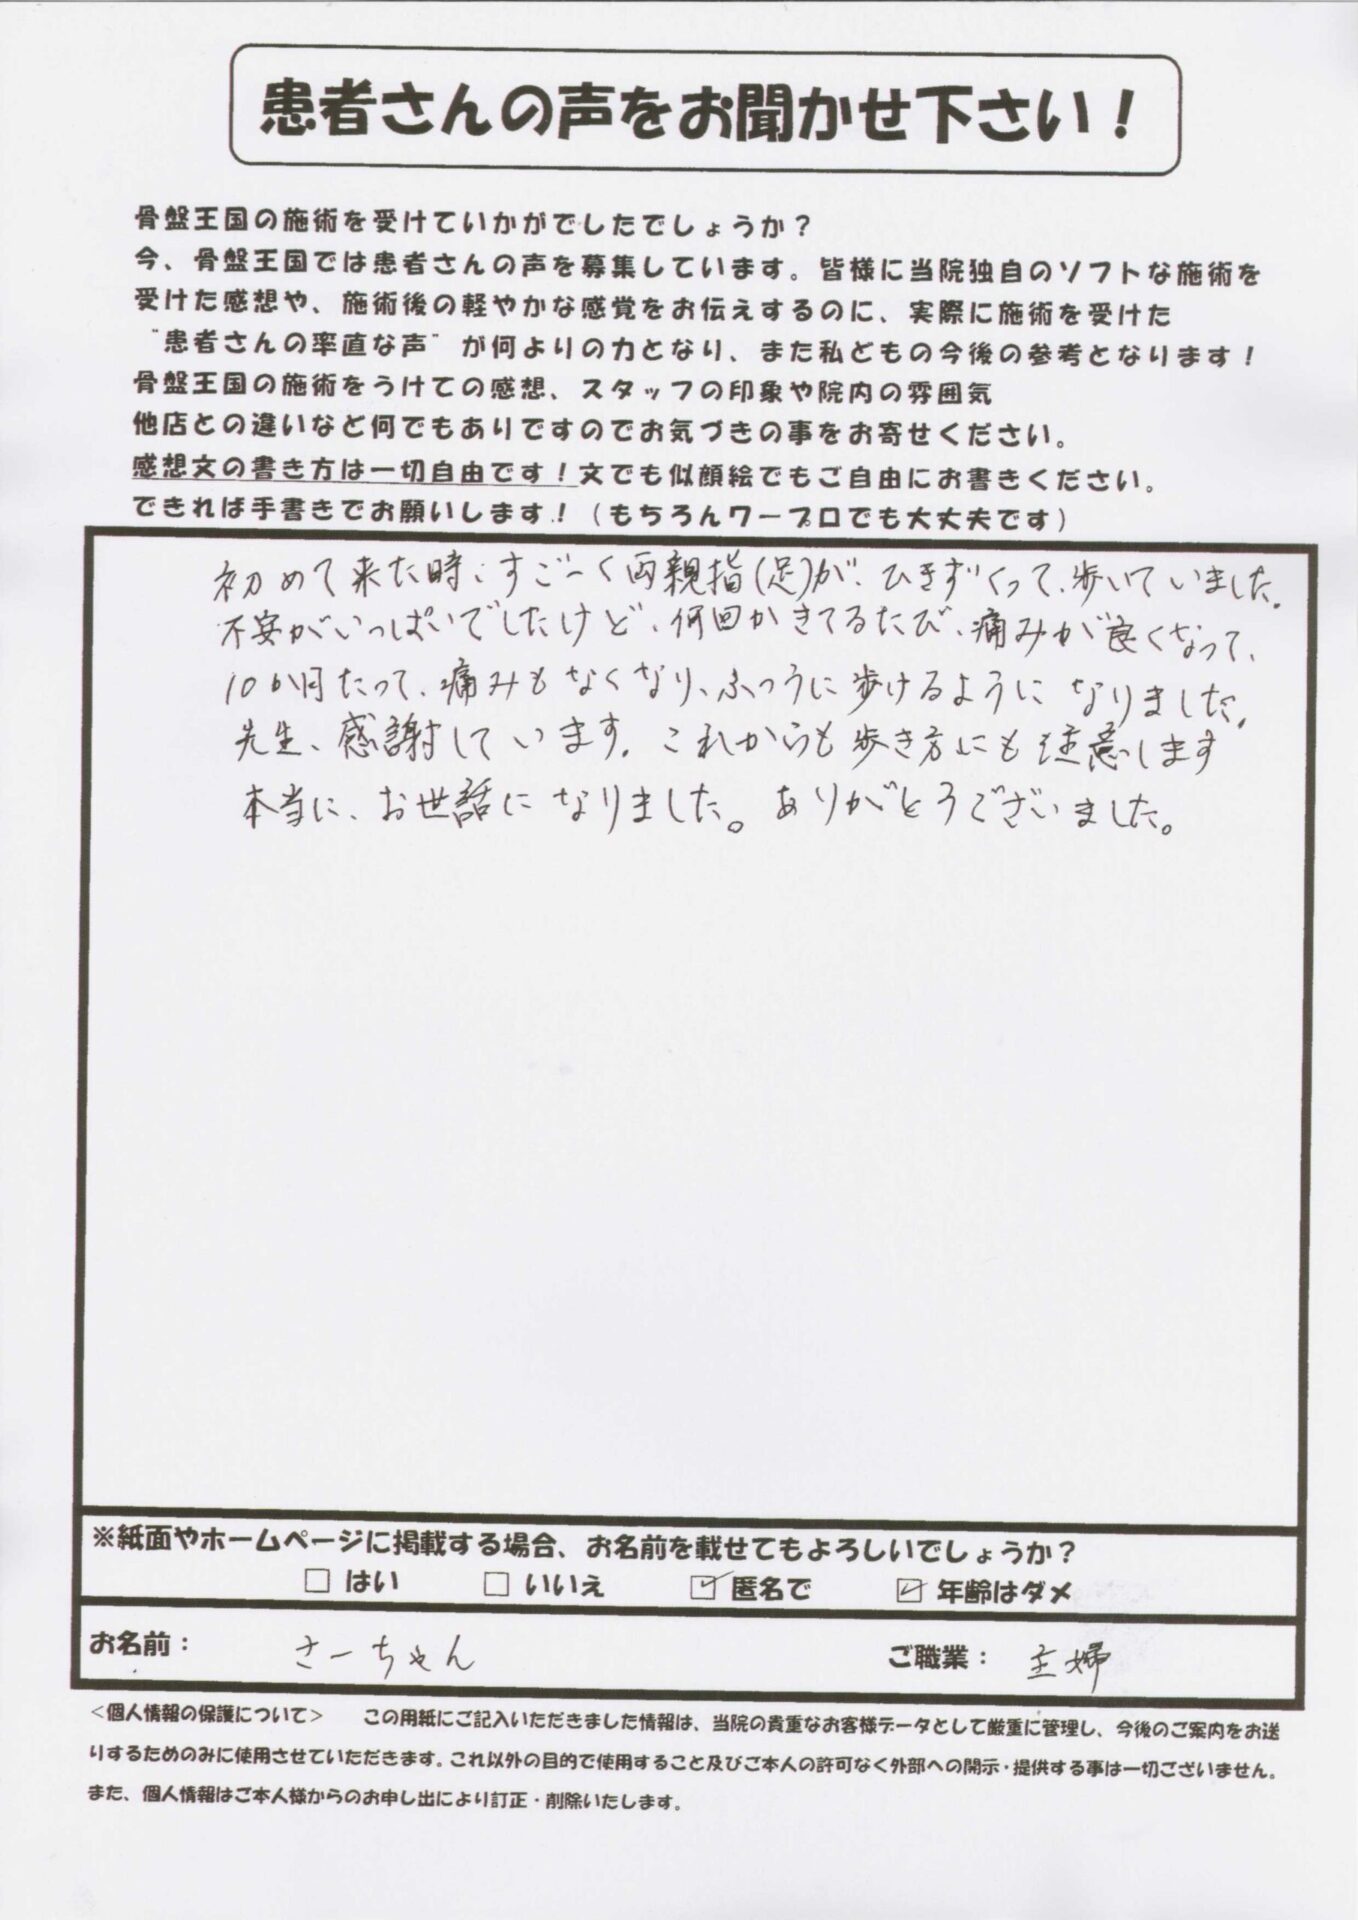 患者さんの声をお聞かせ下さい！
骨盤王国の施術を受けていかがでしたでしょうか？
今、骨盤王国では患者さんの声を募集しています。皆様に当院独自のソフトな施術を
受けた感想や、施術後の軽やかな感覚をお伝えするのに、実際に施術を受けた
“患者さんの率直な声”が何よりの力となり、また私どもの今後の参考となります！
骨盤王国の施術をうけての感想、スタッフの印象や院内の雰囲気
他店との違いなど何でもありですのでお気づきの事をお寄せください。
感想文の書き方は一切自由です！文でも似顔絵でもご自由にお書きください。
できれば手書きでお願いします！（もちろんワープロでも大丈夫です）
初めて来た時、すごーく両親指(足)が、ひきずくって、歩いていました。
不安がいっぱいでしたけど、何回かきてるたび、痛みが良くなって、
10か月たって、痛みもなくなり、ふつうに歩けるようになりました。
先生、感謝しています。これからも歩き方にも注意します
本当に、お世話になりました。ありがとうございました。
※紙面やホームページに掲載する場合、お名前を載せてもよろしいでしょうか？
□ はい □ いいえ ☑ 匿名で ☑ 年齢はダメ
お名前： さーちゃん ご職業： 主婦
＜個人情報の保護について＞ この用紙にご記入いただきました情報は、当院の貴重なお客様データとして厳重に管理し、今後のご案内をお送
りするためのみに使用させていただきます。これ以外の目的で使用すること及びご本人の許可なく外部への開示・提供する事は一切ございません。
また、個人情報はご本人様からのお申し出により訂正・削除いたします。